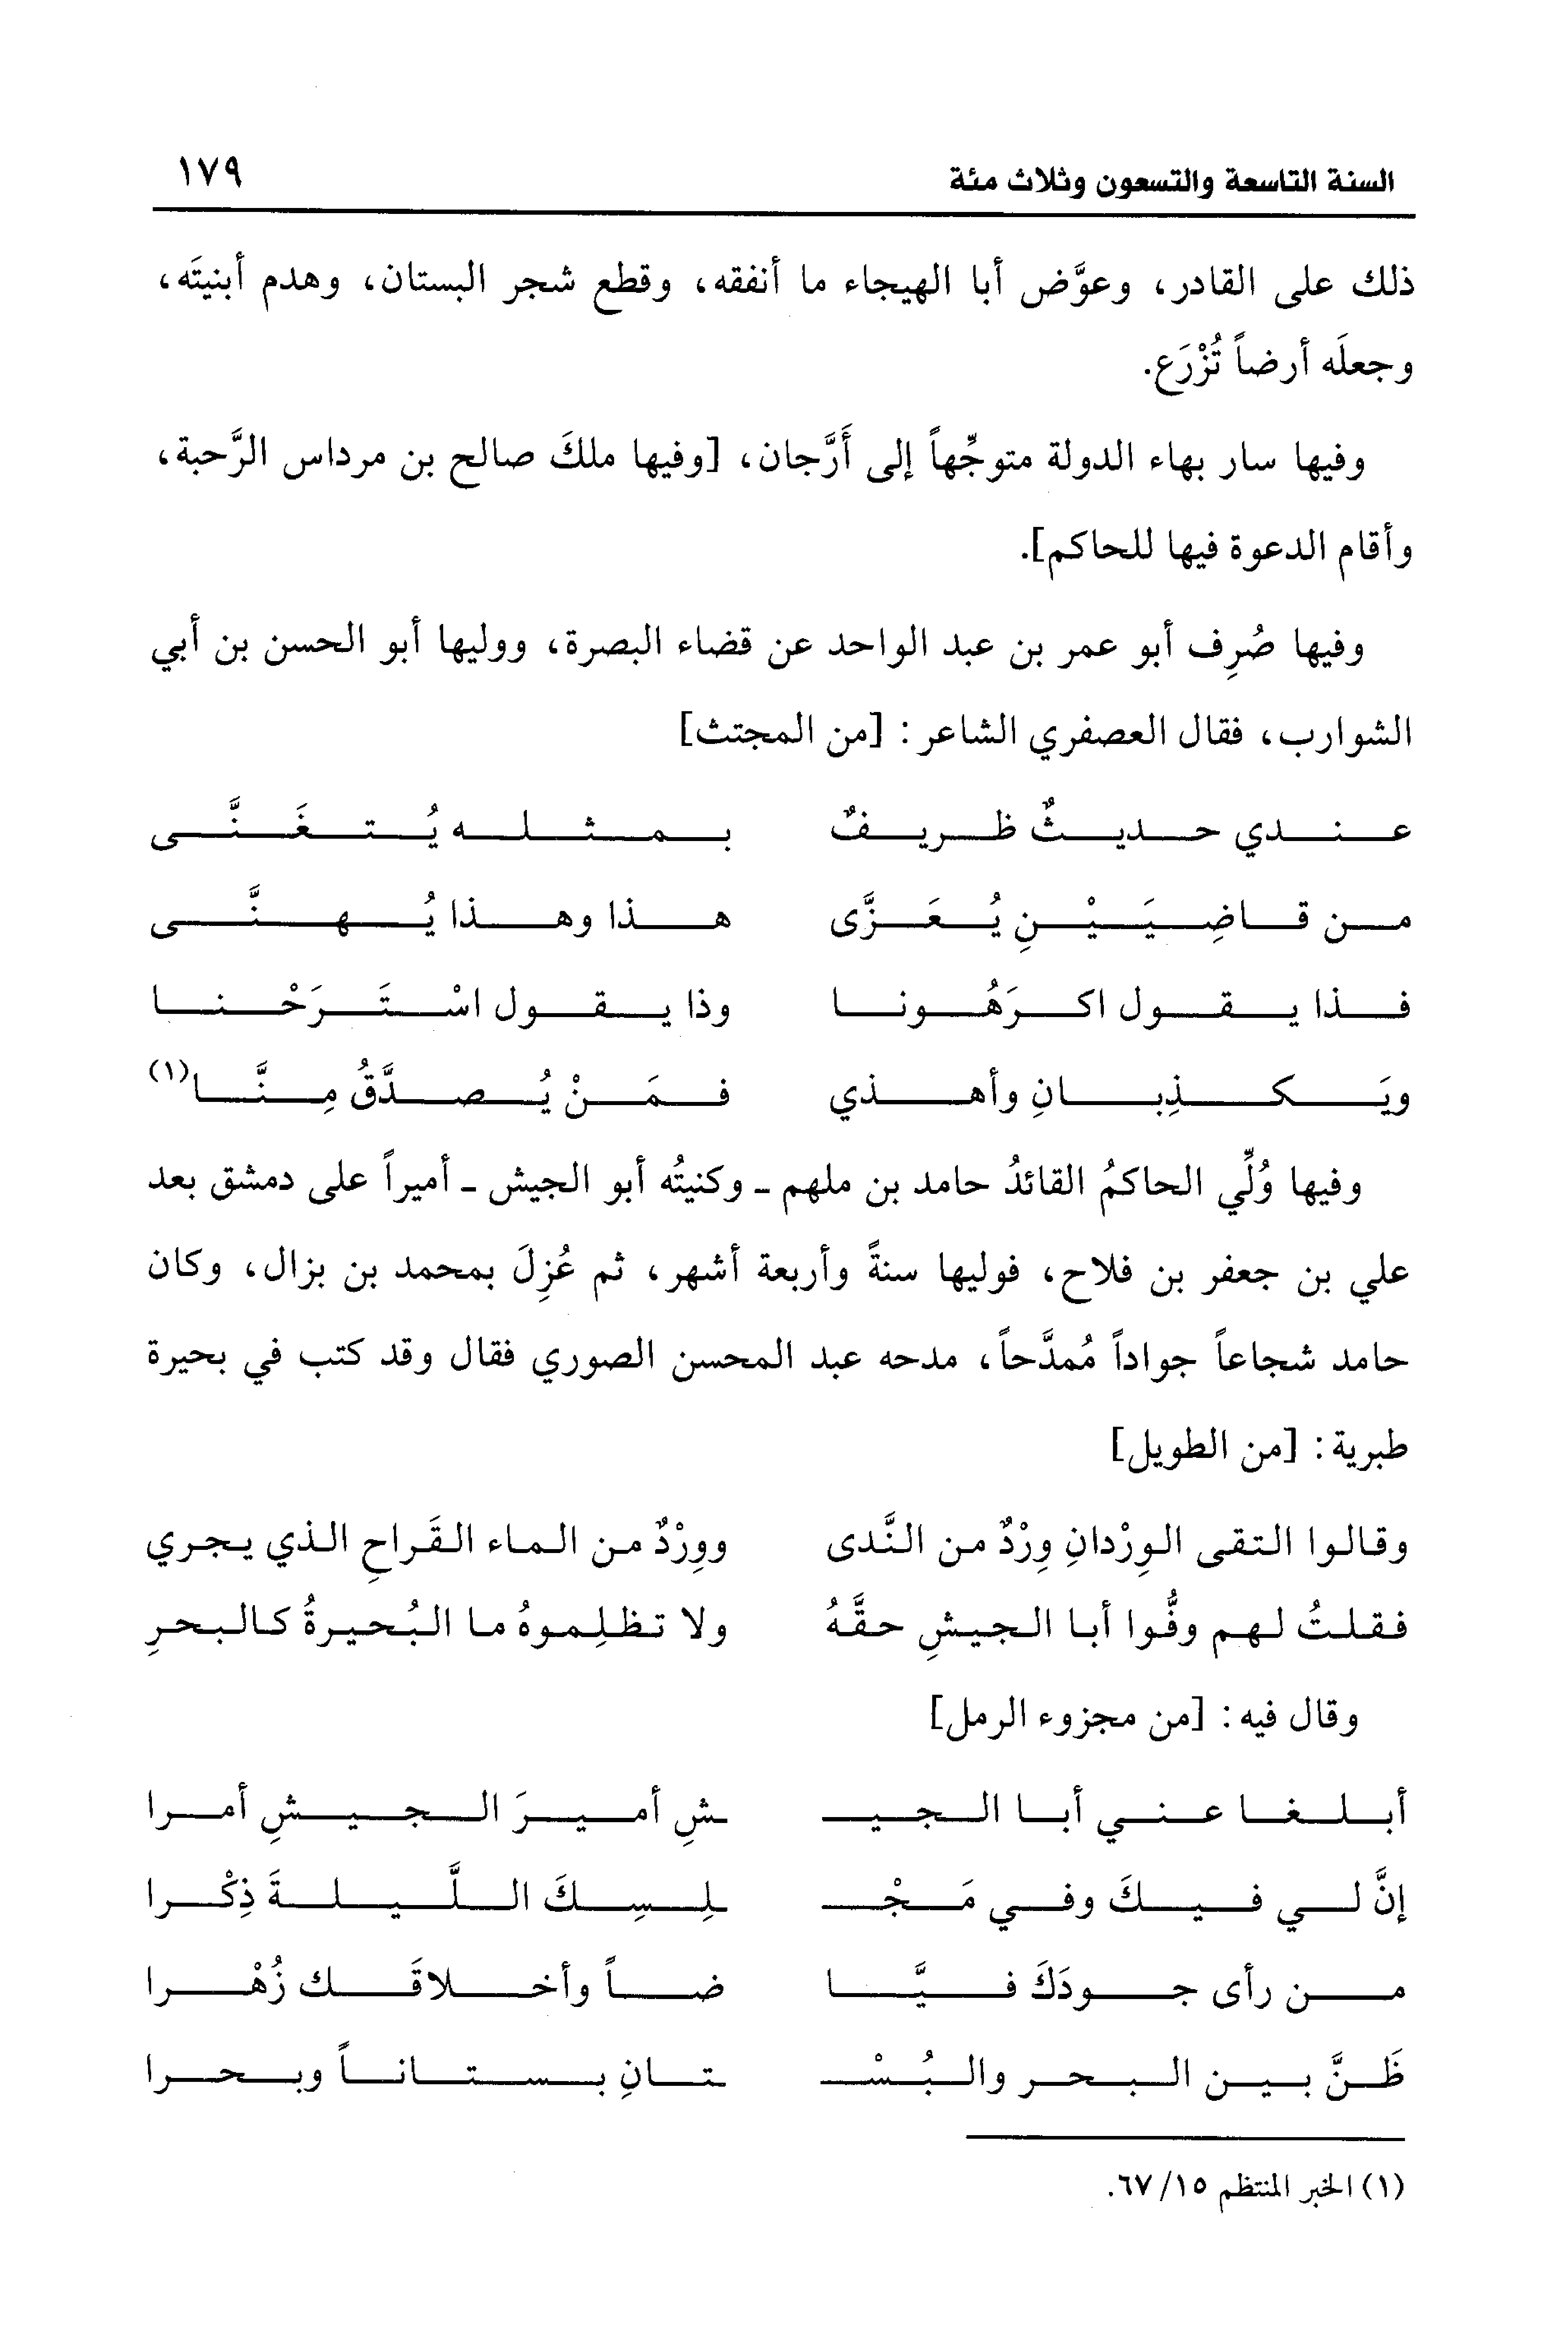 السنة التاسعة والتسعون وثلاث مئة ١٧٩
ذلك على القادر، وعوَّض أبا الهيجاء ما أنفقه، وقطع شجر البستان، وهدم أبنيتَه،
وجعلَه أرضاً تُزْرَع.
وفيها سار بهاء الدولة متوجِّهاً إلى أَرَّجان، [وفيها ملكَ صالح بن مرداس الرَّحبة،
وأقام الدعوة فيها للحاكم].
وفيها صُرِف أبو عمر بن عبد الواحد عن قضاء البصرة، ووليها أبو الحسن بن أبي
الشوارب، فقال العصفري الشاعر: [من المجتث]
عندي حديثٌ ظريفٌ بمثله يُتغَنَّى
من قاضِيَيْنِ يُعَزَّى هذا وهذا يُهنَّى
فذا يقول اكرَهُونا وذا يقول اسْتَرَحْنا
ويَكذِبانِ وأهذي فمَنْ يُصدَّقُ مِنَّا(١)
وفيها وُلِّي الحاكمُ القائدُ حامد بن ملهم - وكنيتُه أبو الجيش - أميراً على دمشق بعد
علي بن جعفر بن فلاح، فوليها سنةً وأربعة أشهر، ثم عُزِلَ بمحمد بن بزال، وكان
حامد شجاعاً جواداً مُمدَّحاً، مدحه عبد المحسن الصوري فقال وقد كتب في بحيرة
طبرية: [من الطويل]
وقالوا التقى الوِرْدانِ وِرْدٌ من النَّدى ووِرْدٌ من الماء القَراحِ الذي يجري
فقلتُ لهم وفُّوا أبا الجيشِ حقَّهُ ولا تظلِموهُ ما البُحيرةُ كالبحرِ
وقال فيه: [من مجزوء الرمل]
أبلغا عني أبا الجيـ ـشِ أميرَ الجيشِ أمرا
إنَّ لي فيكَ وفي مَجْـ ـلِسِكَ اللَّيلةَ ذِكْرا
من رأى جودَكَ فيَّا ضاً وأخلاقَك زُهْرا
ظَنَّ بين البحر والبُسْـ ـتانِ بستاناً وبحرا
(١) الخبر المنتظم ١٥/ ٦٧.